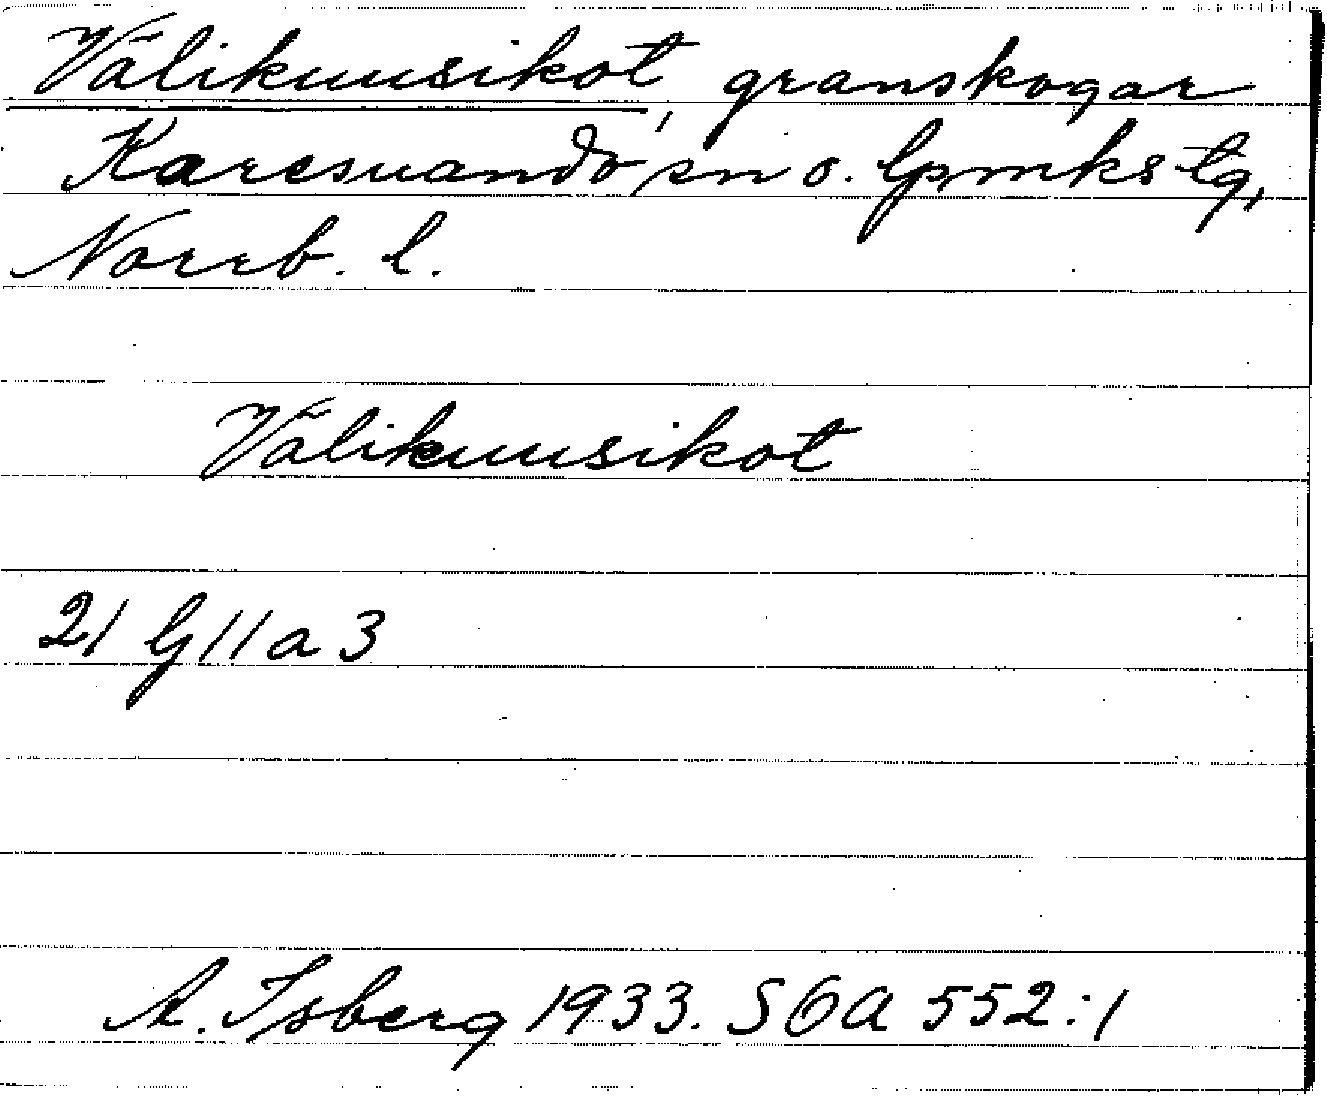 Välikuusikot, granskogar
Karesuando sn o. lpmks tg,
Norrb. l.
Välikuusikot
21 G 11 a 3
A. Isberg 1933. SOA 552:1